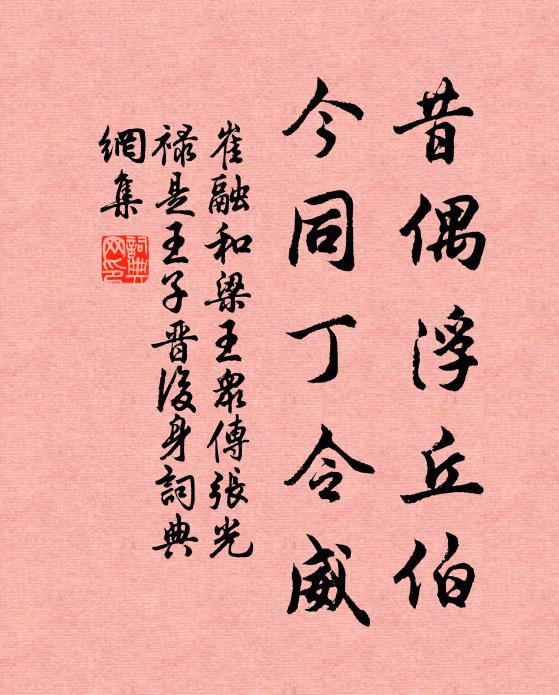 昔偶浮丘伯
今同丁令威
崔融和梁王眾傳張光
祿是王子晋後身詞典
網集
詞典
网印